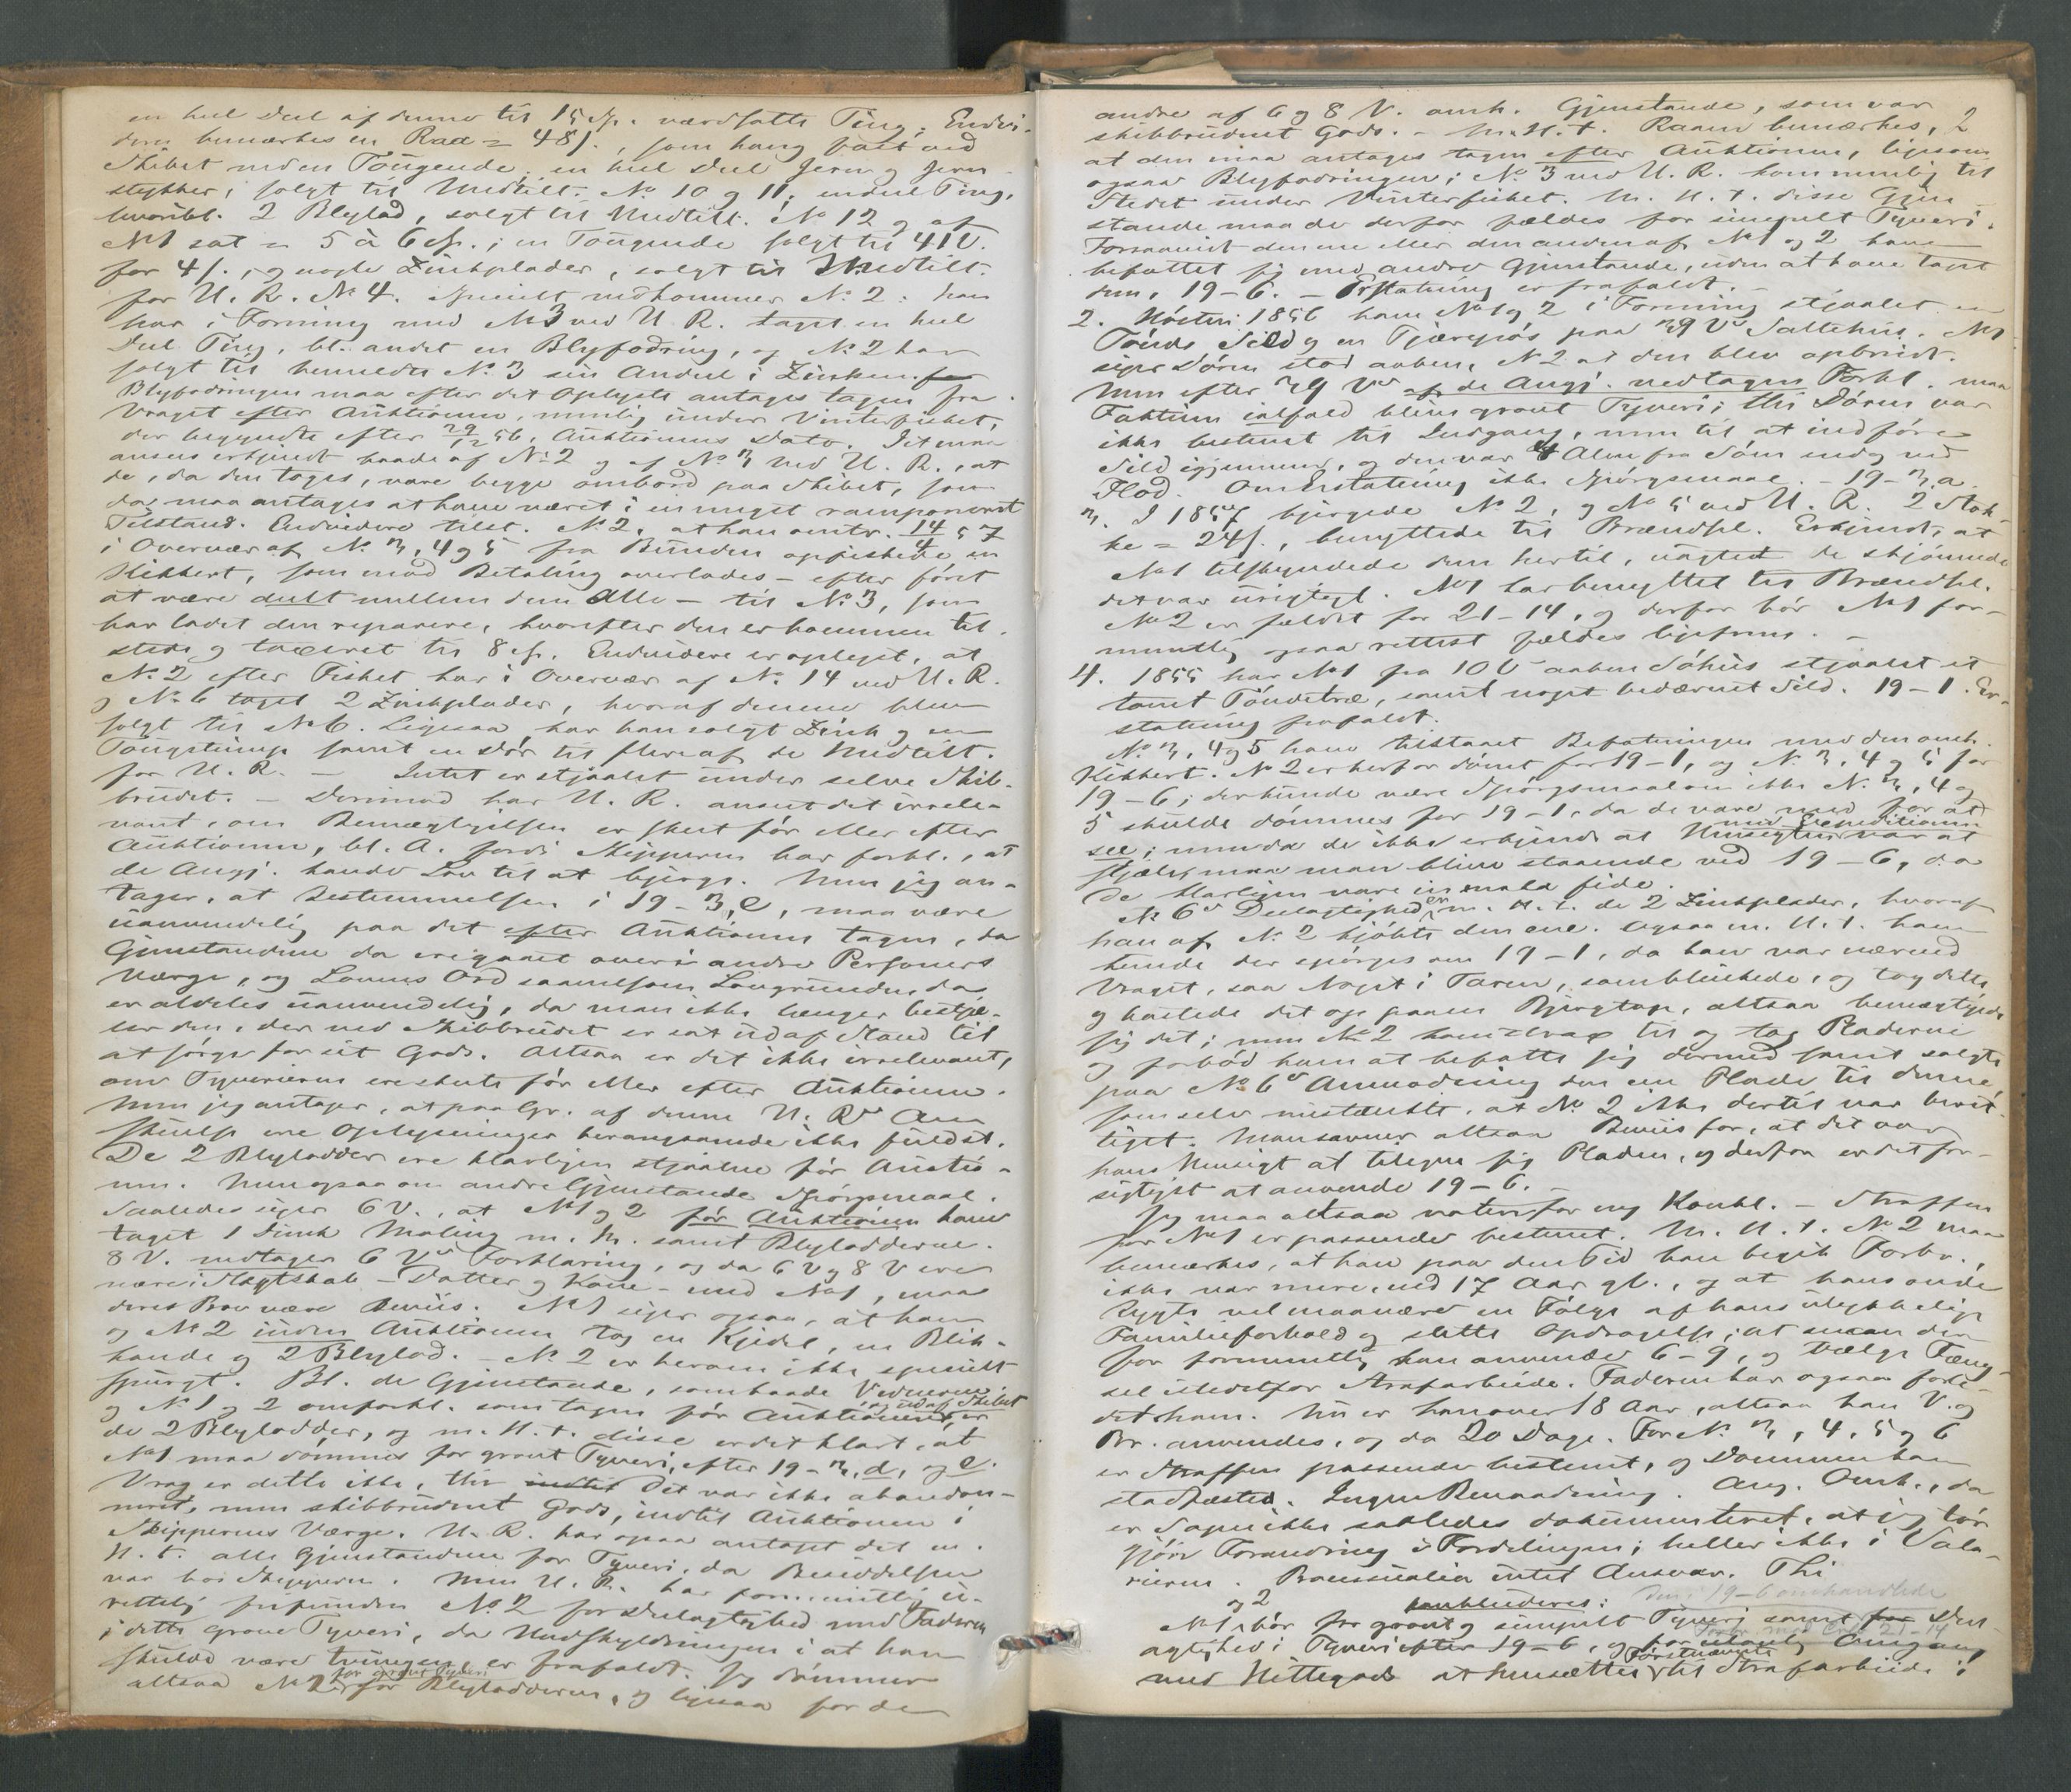 en heel Deel af denne til 15 Sp. værdsatte Ting. Endvi-
dere bemærkes en Raa = 48 s., som hang fast ved
Skibet med en Tougende, en heel Deel Jern og Jern-
stykker, solgt til Medtilt. No 10 og 11, endeel Ting,
hvoribl. 2 Blylod, solgt til Medtilt. No 12 og af
No 1 sat = 5 à 6 Sp.; en Tougende solgt til 41 V.
for 4 s., og nogle Zinkplader, solgt til Medtilt.
for U. R. No 4. Specielt vedkommer No 2: han
har i Forening med No 3 ved U. R. taget en heel
Deel Ting, bl. andet en Blyfodring, og No 2 har
solgt til bemeldte No 3 sin Andeel i Zinken.
Blyfodringen maa efter det Oplyste antages tagen fra
Vraget efter Auktionen, nemlig under Vinterfisket,
der begyndte efter 29/12 56, Auktionens Dato. Det maa
ansees erkjendt baade af No 2 og af No 3 ved U. R., at
de, da den toges, vare begge ombord paa Skibet, som
da maa antages at have været i en meget ramponeret
Tilstand. Endvidere tilst. No 2, at han omtr. 14/4 57
i Overvær af No 3, 4 og 5 fra Bunden opfiskede en
Kikkert, som mod Betaling overlodes – efter først
at være deelt mellem dem Alle – til No 3, som
har ladet den reparere, hvorefter den er kommen til-
stede og taxeret til 8 Sp. Endvidere er oplyst, at
No 2 efter Fisket har i Overvær af No 14 ved U. R.
og No 6 taget 2 Zinkplader, hvoraf denene blev
solgt til No 6. Ligesaa har han solgt Zink og en
Tougstump samt en Dør til flere af de Medtilt.
for U. R. – Intet er stjaalet under selve Skib-
bruddet. – Derimod har U. R. anseet det irrele-
vant, om Bemægtigelsen er skeet før eller efter
Auktionen, bl. A. fordi Skipperen har forkl., at
de Angj. havde Lov til at bjerge. Men jeg an-
tager, at Bestemmelsen i 19–3, e, maa være
uanvendelig paa det efter Auktionen tagne, da
Gjenstandene da ere gaaet over i andre Personers
Værge, og Lovens Ord saavelsom Lovgrunden da
er aldeles uanvendelig, da man ikke længer bestjæ-
ler den, der ved Skibbruddet er sat ud af Stand til
at sørge for sit Gods. Altsaa er det ikke irrelevant,
om Tyverierne ere skeete før eller efter Auktionen.
Men jeg antager, at paa Gr. af denne U. Rs An-
skuelse ere Oplysningerne herangaaende ikke fuldst.
De 2 Blylodder ere klarligen stjaalne før Auktio-
nen. Men ogsaa om andre Gjenstande Spørgsmaal.
Saaledes siger 6 V., at No 1 og 2 før Auktionen have
taget 1 Dunk Maling m. M. samt Blylodderne.
8 V. vedtager 6 Vs Forklaring, og da 6 V og 8 V ere
nære i Slægtskab – Datter og Kone – med No 1, maa
deres Prov være Beviis. No 1 siger ogsaa, at han
og No 2 inden Auktionen tog en Kjedel, en Blik-
kande og 2 Blylod. – No 2 er herom ikke specielt
spurgt. Bl. de Gjenstande, som baade Vidnerne
og No 1 og 2 omforkl. som tagne før Auktionen og ud af Skibet, er
de 2 Blylodder, og m. H. t. disse er det klart, at
No 1 maa dømmes for grovt Tyveri efter 19–3, d, og e.
Vrag er dette ikke, thi det var ikke abandon-
neret, men skibbrudent Gods, indtil Auktionen i
Skipperens Værge. U. R. har ogsaa antaget det m.
H. t. alle Gjenstandene for Tyveri, da Besiddelsen
var hos Skipperen. Men U. R. har formentlig u-
rettelig frifunden No 2 for Deelagtighed med Faderen
i dette grove Tyveri, da Undskyldningen i at han
skulde være tvungen er frafaldt. Jeg dømmer
altsaa No 2 for grovt Tyveri for Blylodderne, og ligesaa for de
andre af 6 og 8 V. omh. Gjenstande, som var
skibbrudent Gods. – M. H. t. Raaen bemærkes, 2
at den maa antages tagen efter Auktionen, ligesom
ogsaa Blyfodringen; No 3 ved U. R. kom nemlig til
Stedet under Vinterfisket. M. H. t. disse Gjen-
stande maa de derfor fældes for simpelt Tyveri.
Forsaavidt den ene eller den anden af No 1 og 2 have
befattet sig med andre Gjenstande, uden at have taget
dem, 19–6. – Erstatning er frafaldt. –
2. Høsten 1856 have No 1 og 2 i Forening stjaalet en
Tønde Sild og en Tjærepøs paa 39 Vs Saltehuus. No 1
siger Døren stod aaben, No 2 at den blev opbrudt.
Men efter 39 Vs af de Angj. vedtagen Forkl. maa
Faktum ialfald blive grovt Tyveri; thi Døren var
ikke bestemt til Indgang, men til at indføre
Sild igjennem, og den var 4 Alen fra Søen endog ved
Flod. Om Erstatning ikke Spørgsmaal. – 19–3, a.
3. I 1857 bjergede No 2, og No 5 ved U. R. 2 Stok-
ke = 24 s., benyttede til Brændsel. Erkjendt, at
No 1 tilskyndede dem hertil, uagtet de skjønnede
det var urigtigt. No 1 har benyttet til Brændsel.
No 2 er fældet for 21–14, og derfor bør No 1 for-
mentlig ogsaa rettest fældes ligefrem. –
4. 1855 har No 1 fra 10 Vs aabne Søhuus stjaalet et
tomt Tøndetræ, samt noget bedærvet Sild. 19–1. Er-
statning frafaldt.
No 3, 4 og 5 have tilstaaet Befatningen med den omh.
Kikkert. No 2 er herfor dømt for 19–1, og No 3, 4 og 5 for
19–6; der kunde være Spørgsmaal om ikke No 3, 4 og
5 skulde dømmes for 19–1, da de vare med for at
see; men da de ikke erkjende at Hensigten med Expeditionen var at
stjæle, maa man blive staaende ved 19–6, da
de klarligen vare in mala fide.
No 6s Deelagtighed er m. H. t. de 2 Zinkplader, hvoraf
han af No 2 kjøbte den ene. Ogsaa m. H. t. ham
kunde der spørges om 19–1, da han var nærved
Vraget, saa Noget i Taren, som blinkede, og tog dette
og halede det op paa en Bjergtop, altsaa bemægtigede
sig det; men No 2 kom strax til og tog Pladerne
og forbød ham at befatte sig dermed samt solgte
paa No 6s Anmodning den ene Plade til denne,
som selv mistænkte, at No 2 ikke dertil var beret-
tiget. Man savner altsaa Beviis for, at det var
hans Hensigt at tilegne sig Pladen, og derfor er det for-
sigtigst at anvende 19–6. –
Jeg maa altsaa votere for ny Konkl. – Straffen
for No 1 er passende bestemt. M. H. t. No 2 maa
bemærkes, at han paa den Tid han begik Forbr.,
ikke var mere, end 17 Aar gl., og at hans onde
Rygte vel maa være en Følge af hans ulykkelige
Familieforhold og slette Opdragelse; at man der-
for formentlig kan anvende 6–9, og vælge Fæng-
sel istedetfor Strafarbeide. Faderen har ogsaa forle-
det ham. Nu er han over 18 Aar, altsaa kan V. og
Br. anvendes, og da 20 Dage. For No 3, 4, 5 og 6
er Straffen passende bestemt, og Dommen kan
stadfæstes. Ingen Benaadning. Ang. Omk., da
er Sagen ikke saaledes dokumenteret, at jeg tør
gjøre Forandring i Fordelingen; heller ikke i Sala-
rierne. Processualia intet Ansvar. Thi
konkluderes: den i 19–6 omhandlede
No 1 og 2 bør for grovt og simpelt Tyveri samt for Deel-
agtighed i Tyveri efter 19–6, og for ulovlig Omgang
med Hittegods at hensættes Førstnævnte til Strafarbeide i